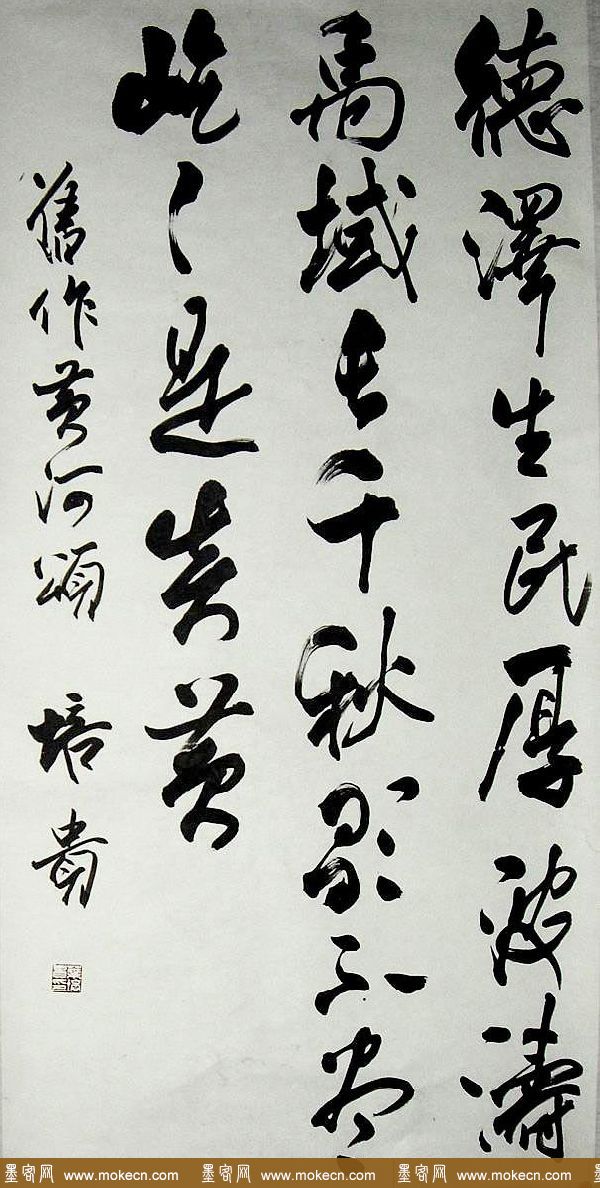 德澤生民厚波濤
禹域長千秋不盡
屹々是炎黄
舊作黄河頌 培貴
墨客网 www.mokecn.com 墨客网 www.mokecn.com 墨客网 www.mokecn.com 墨